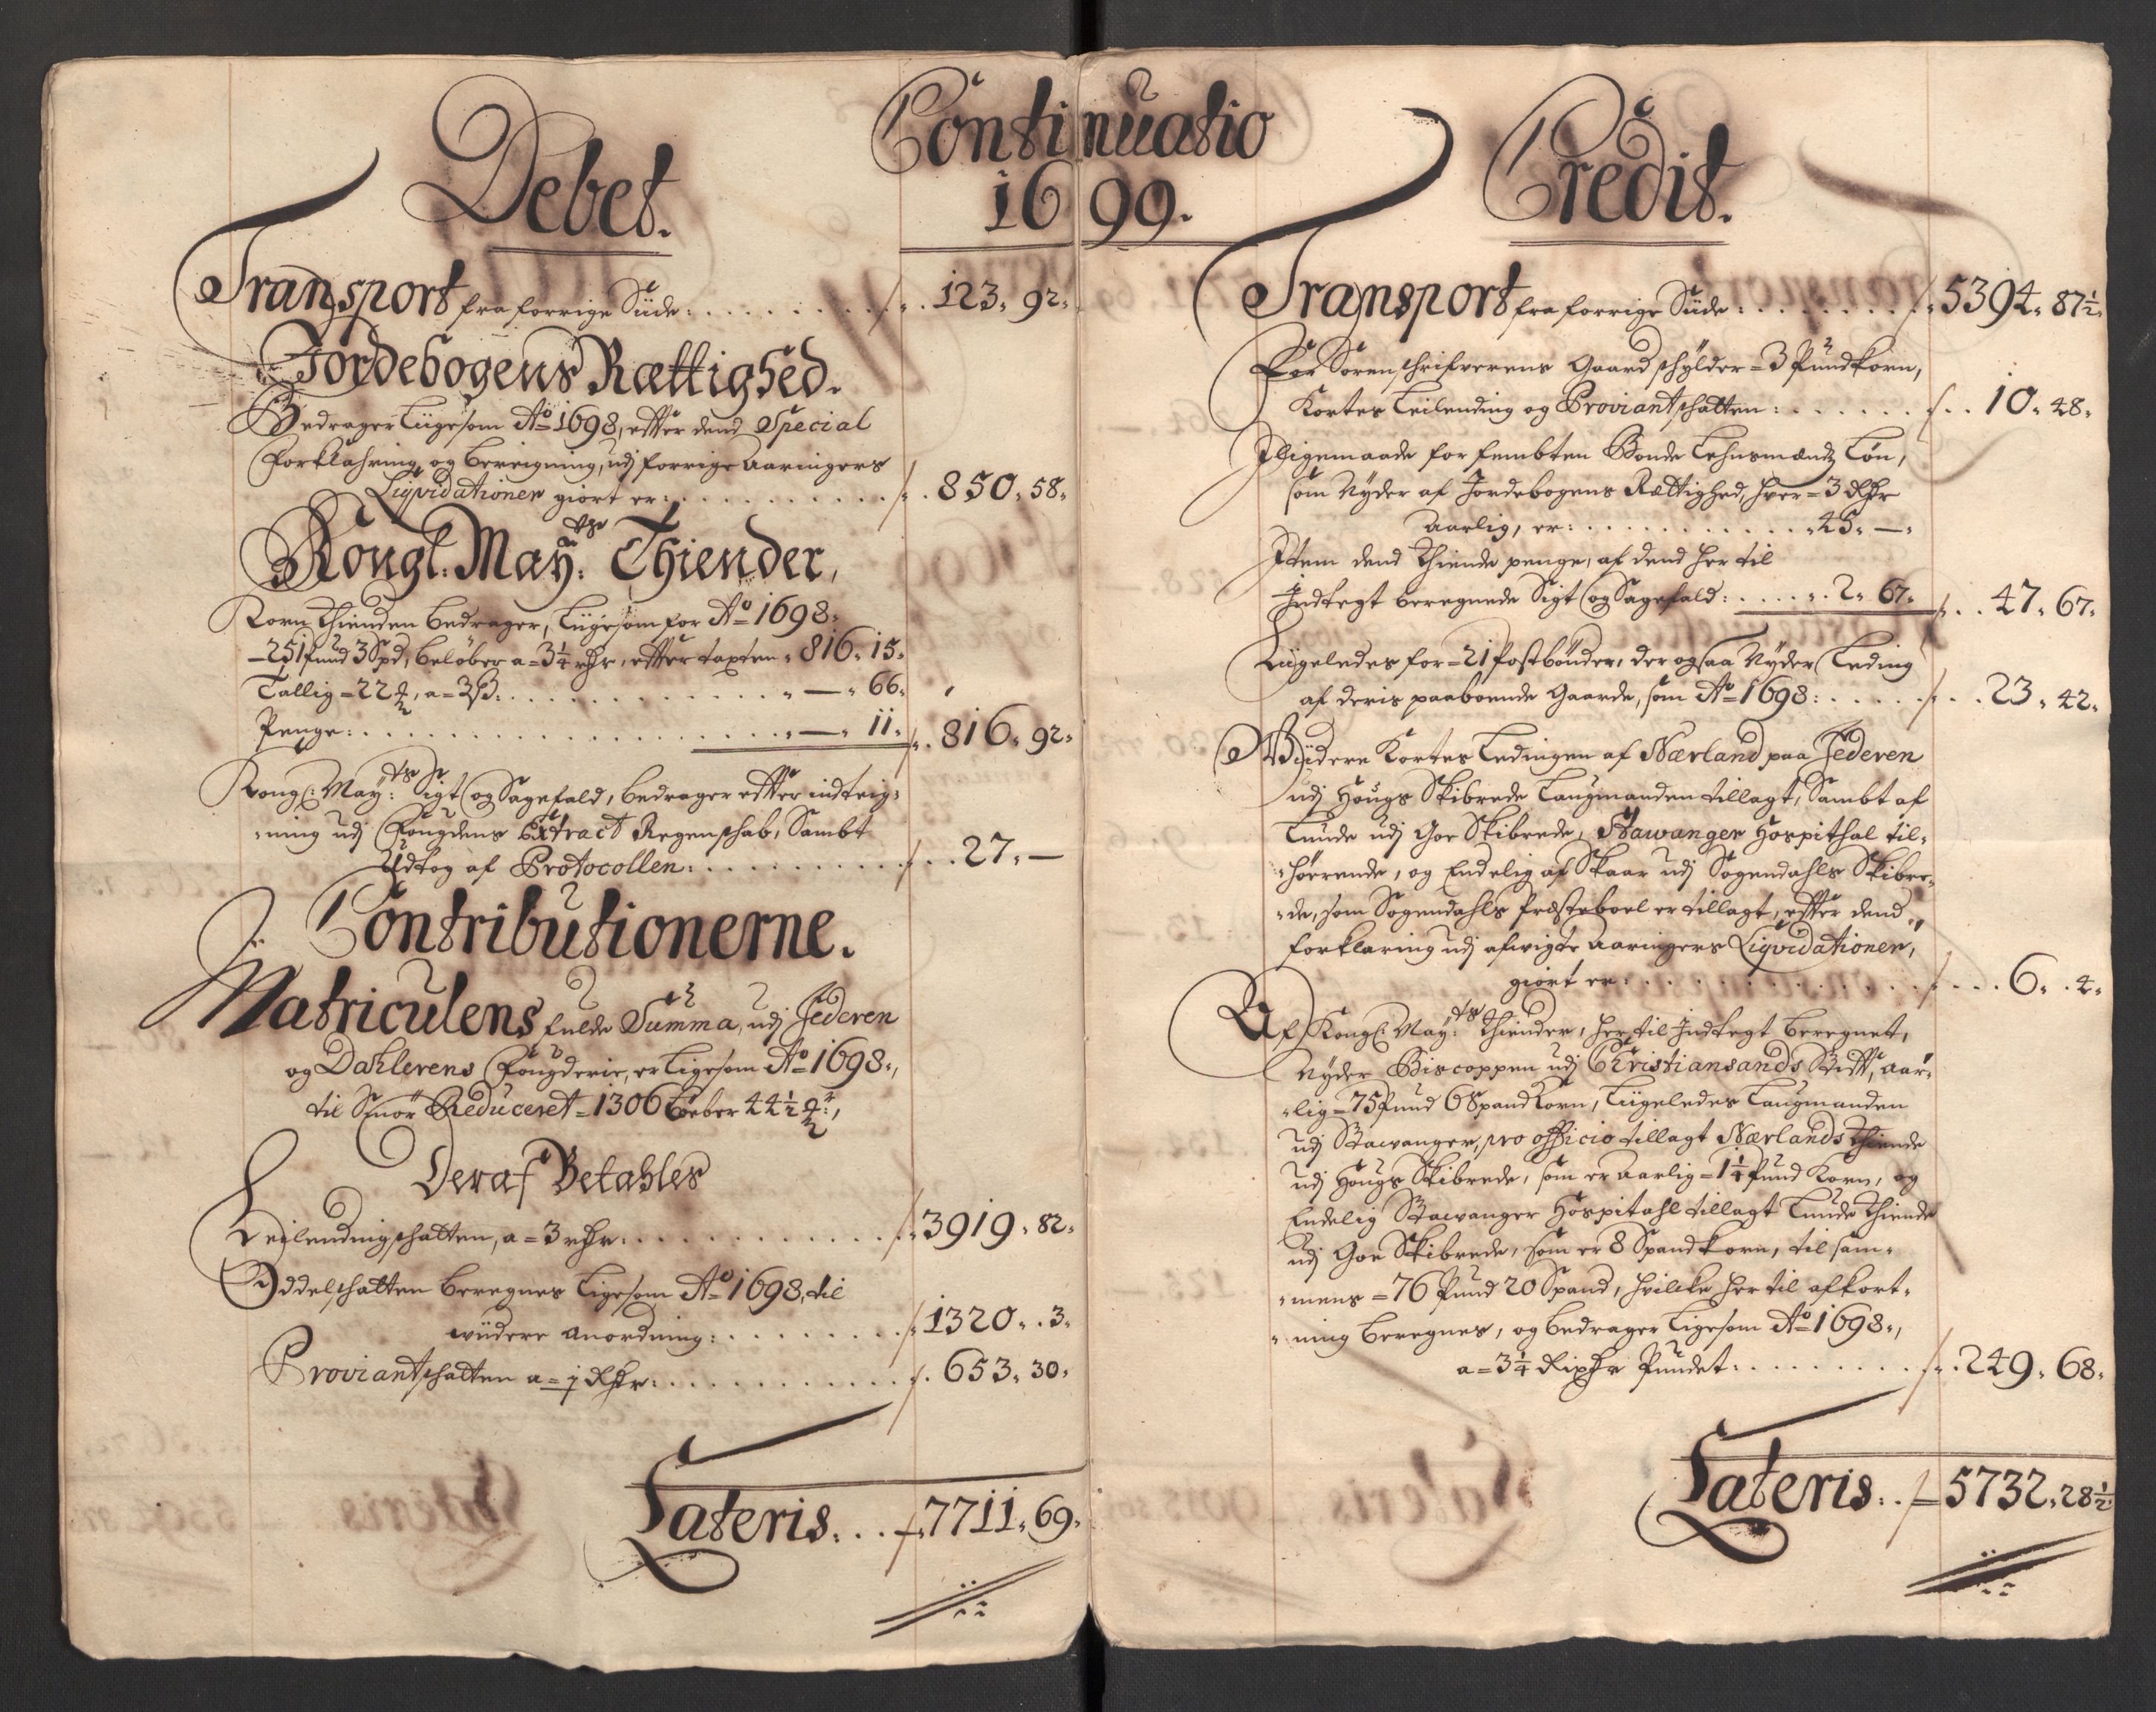 Continuatio
1699.
Debet.
Transport fra forrige Siide: . . . . . . . . . . 123. 92.
Jordebogens Rættighed.
Bedrager liigesom Aō 1698, effter dend Special
Forklahring og bereigning, udj forrige Aaringers
Liqvidationer giort er: . . . . . . . . . . 850. 58.
Kongl: May: tz Thiender,
Korn Thienden bedrager, liigesom for Aō 1698.
251 Pund 3 Spd, beløber a = 3¼ rdr, effter taxten. 816. 15.
Tallig = 22 ℔, a = 3 ß: . . . . . . — 66.
Penge: . . . . . . . . — 11. 816. 92.
Kongl: May: ts Sigt og Sagefald, bedrager effter indteig-
ning udj Fougdens Extract Regenschab, Sambt
Udtog af Protocollen: . . . . . . . . . 27. —
Contributionerne.
Matriculens fulde Summa, udj Jederen
og Dahlerens Fougderie, er ligesom Aō 1698.,
til Smør Reduceret = 1306 Løber 44½ ℔.,
Deraf Betahles
Leilendingschatten, a = 3 rdr: . . . . . . . 3919. 82.
Oddelschatten beregnes ligesom Aō 1698, til
wiidere anordning: . . . . . . . . 1320. . 3.
Proviantschatten a = ½ Rdr: . . . . . . . 653. 30.
Lateris: . . . 7711. 69.
Credit.
Transport fra forrige Siide: . . . . . . . 5394. 87½.
For Sorenschrifverens Gaard schylder = 3 Pund korn,
Kortes Leilending og Proviantschatten: . . . . . . . 10. 48.
Jligemaade for fembten Bonde Lehnsmændz Løn,
som Nyder af Jordebogens Rættighed, hver = 3 Rdr
Aarlig, er: . . . . . . . . . . 45. —.
Jtem dend Thiende penge, af dend her til
Jndtegt beregnede Sigt og Sagefald: . . . . . 2. 67. . . 47. 67.
Liigeledes for = 21 Postbønder, der ogsaa Nyder Leding
af deris paaboende Gaarde, som Aō 1698: . . . . . . 23. 42.
Wiidere Kortes Ledingen af Nærland paa Jederen
udj Hougs Skibrede Laugmanden tillagt, Sambt af
Lunde udj Goe Skibrede, Stawanger Hospithal til-
hørrende, og Endelig af Skaar udj Sogendahls Skibre-
de, som Sogendahls Præsteboel er tillagt, effter dend
forklaring udj afvigte Aaringers Liqvidationer,
giort er: . . . . . . . . . . . . 6. . 4.
Af Kongl: May: ts Thiender, her til Jndtegt beregnet,
Nyder Biscoppen udj Christiansands Stifft, Aar-
lig = 75 Pund 6 Spand Korn, Liigeledes Laugmanden
udj Stawanger, pro officio tillagt Nærlands Thiende
udj Hougs Skibrede, som er Aarlig = 1¼ Pund Korn, og
Endelig Stawanger Hospitahl tillagt Lunde Thiende
udj Goe Skibrede, som er 8 Spand korn, til sam-
mens = 76 Pund 20 Spand, hvilcke her til afkort-
ning beregnes, og bedrager ligesom Aō 1698.,
a = 3¼ Rixdr Pundet: . . . . . . . . . 249. 68.
Lateris: . 5732. 28½